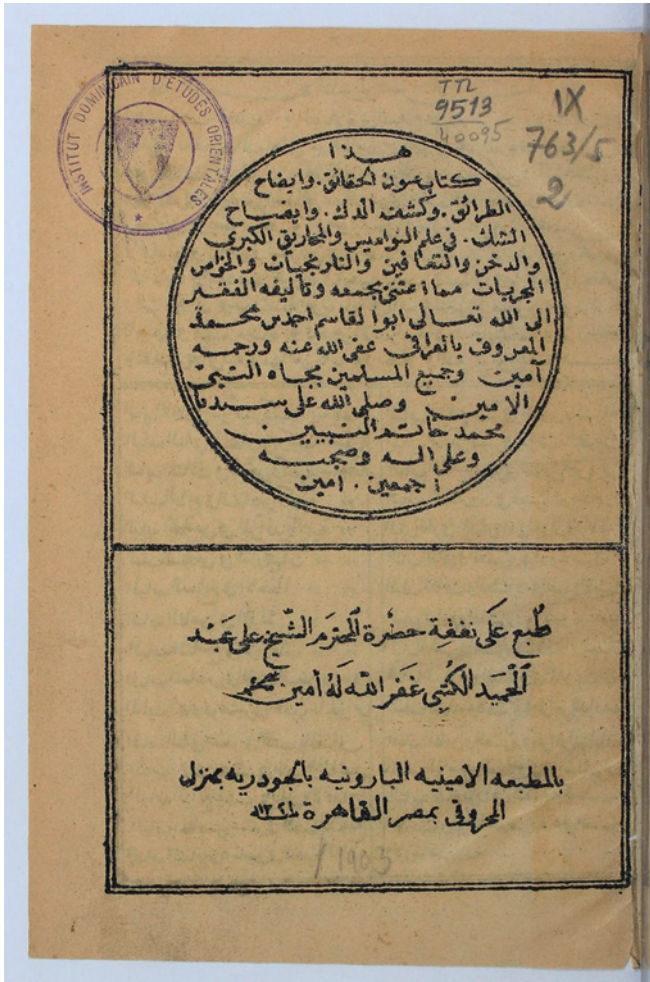 INSTITUT DOMINICAIN D'ETUDES ORIENTALES
TTL
9513
40095
IX
763/5
2
هذا
كتاب عيون الحقائق. وايضاح
الطرائق. وكشف الدك. وايضاح
الشك. في علم النواميس والمخاريق الكبرى
والدخن والتعافين والنارنجيات والخواص
المجربات مما اعتنى بجمعه وتاليفه الفقير
الى الله تعالى ابوالقاسم احمد بن محمد
المعروف بالعراقي عفى الله عنه ورحمه
آمين وجميع المسلمين بجاه النبي
الامين وصلى الله على سيدنا
محمد خاتم النبيين
وعلى اله وصحبه
اجمعين. امين
طُبع عَلَى نفقة حضرة المحترم الشيخ على عَبْد
الْحَميد الكُتبى غَفر الله لَهُ أمين
بالمطبعه الامينيه البارونيه بالجودريه بمنزل
المحروقى بمصر القاهرة
/ 1903